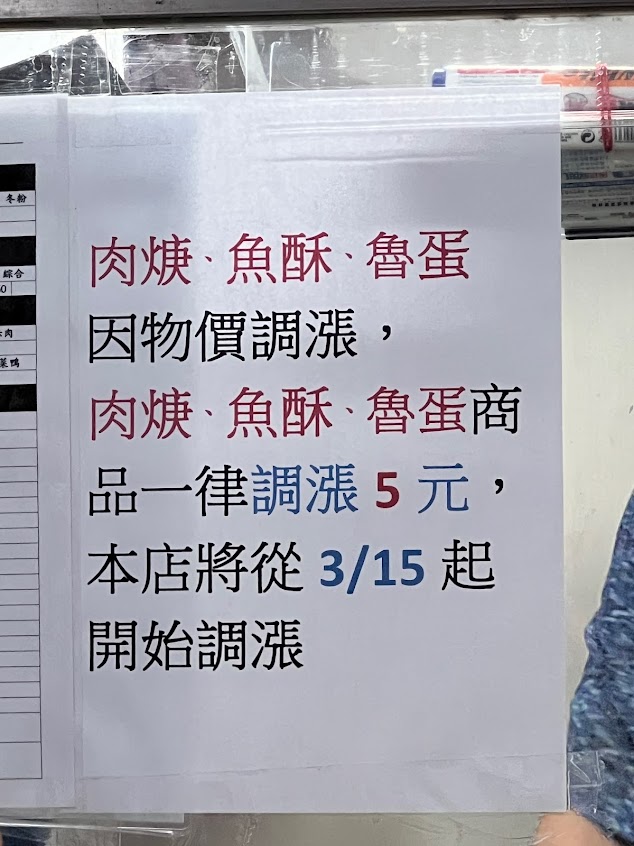 肉焿、魚酥、魯蛋
因物價調漲，
肉焿、魚酥、魯蛋商
品一律調漲 5 元，
本店將從 3/15 起
開始調漲
冬粉
綜合
肉
菜鴨